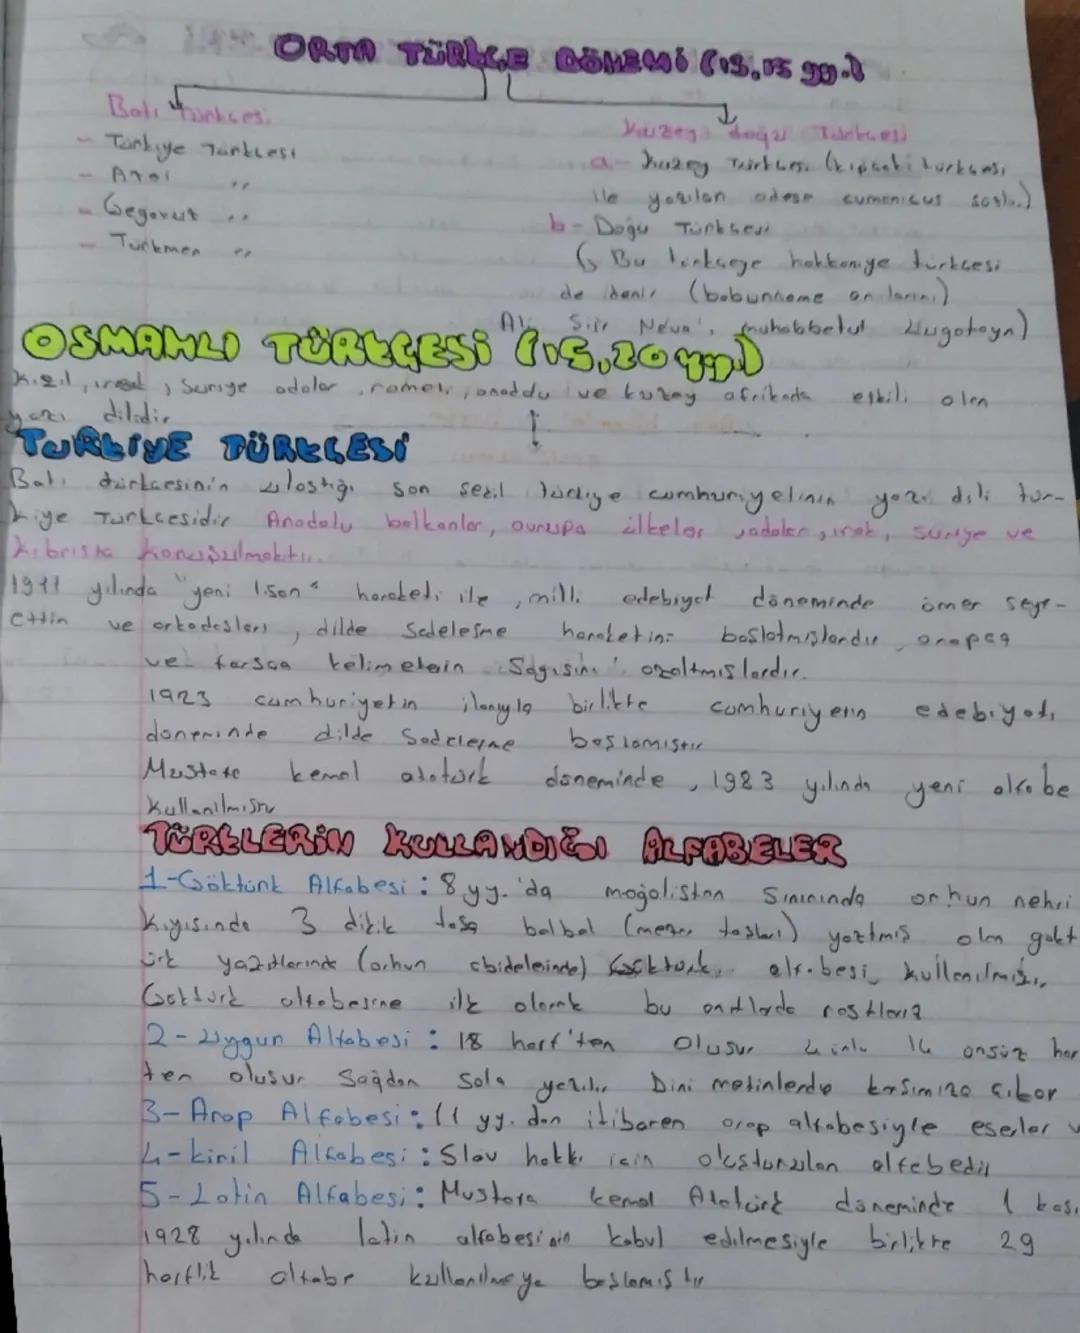 ORTA TÜRKÇE DÖNEMİ (13,15 yy.)
Batı türkçesi
- Türkiye Türkçesi
- Azeri "
- Gagavuz "
- Türkmen "
Kuzey doğu Türkçesi
a- Kuzey Türkçesi (kıpçak türkçesi
ile yazılan cumenicus
b- Doğu Türkçesi
↳ Bu türkçeye hakkaniye türkçesi
de denir (babunname
Ali Şiir Nevai, muhabbetul Lugatayn)
OSMANLI TÜRKÇESİ (15,20 yy.)
Kızıl, ırak, Suriye adalar, rameli, anaddu ve kuzey afrikada etkili olan
yazı dilidir
TÜRKİYE TÜRKÇESİ
Batı türkçesinin ulaştığı son türkiye cumhuriyetinin yazı dili tür-
kiye Türkçesidir Anadolu balkanlar, avrupa ülkeler, adalar, ırak, Suriye ve
kıbrısta konuşulmaktır.
1911 yılında "yeni lisan" hareketi ile, milli edebiyat döneminde ömer seyf-
ettin ve arkadaşları, dilde Sadeleşme hareketini başlatmışlardır, arapça
ve farsça kelimelerin sayısını azaltmışlardır.
1923 cumhuriyetin ilanıyla birlikte cumhuriyetin edebiyatı
döneminde dilde Sadeleşme başlamıştır
Mustafa kemal atatürk döneminde, 1983 yılında yeni alfabe
kullanılmıştır
TÜRKLERİN KULLANDIĞI ALFABELER
1-Göktürk Alfabesi: 8.yy.'da moğolistan Sınırında orhun nehri
kıyısında 3 dikik taşa balbal (mezar taşları) yazılmış olan gökt
ürk yazıtlarında (orhun abidelerinde) Göktürk alfabesi kullanılmıştır.
Göktürk alfabesine ilk olarak bu anıtlarda rastlarız
2-Uygun Alfabesi: 18 harf'ten oluşur 4 ünlü 14 ünsüz har
ten oluşur Sağdan Sola yazılır. Dini metinlerde karşımıza çıkar
3-Arap Alfabesi: 11 yy. dan itibaren arap alfabesiyle eserler v
4-kiril Alfabesi: Slav halkı için oluşturulan alfebedir
5-Latin Alfabesi: Mustafa kemal Atatürk döneminde 1 kası
1928 yılında latin alfabesinin kabul edilmesiyle birlikte 29
harflik alfabe kullanılmaya başlamıştır